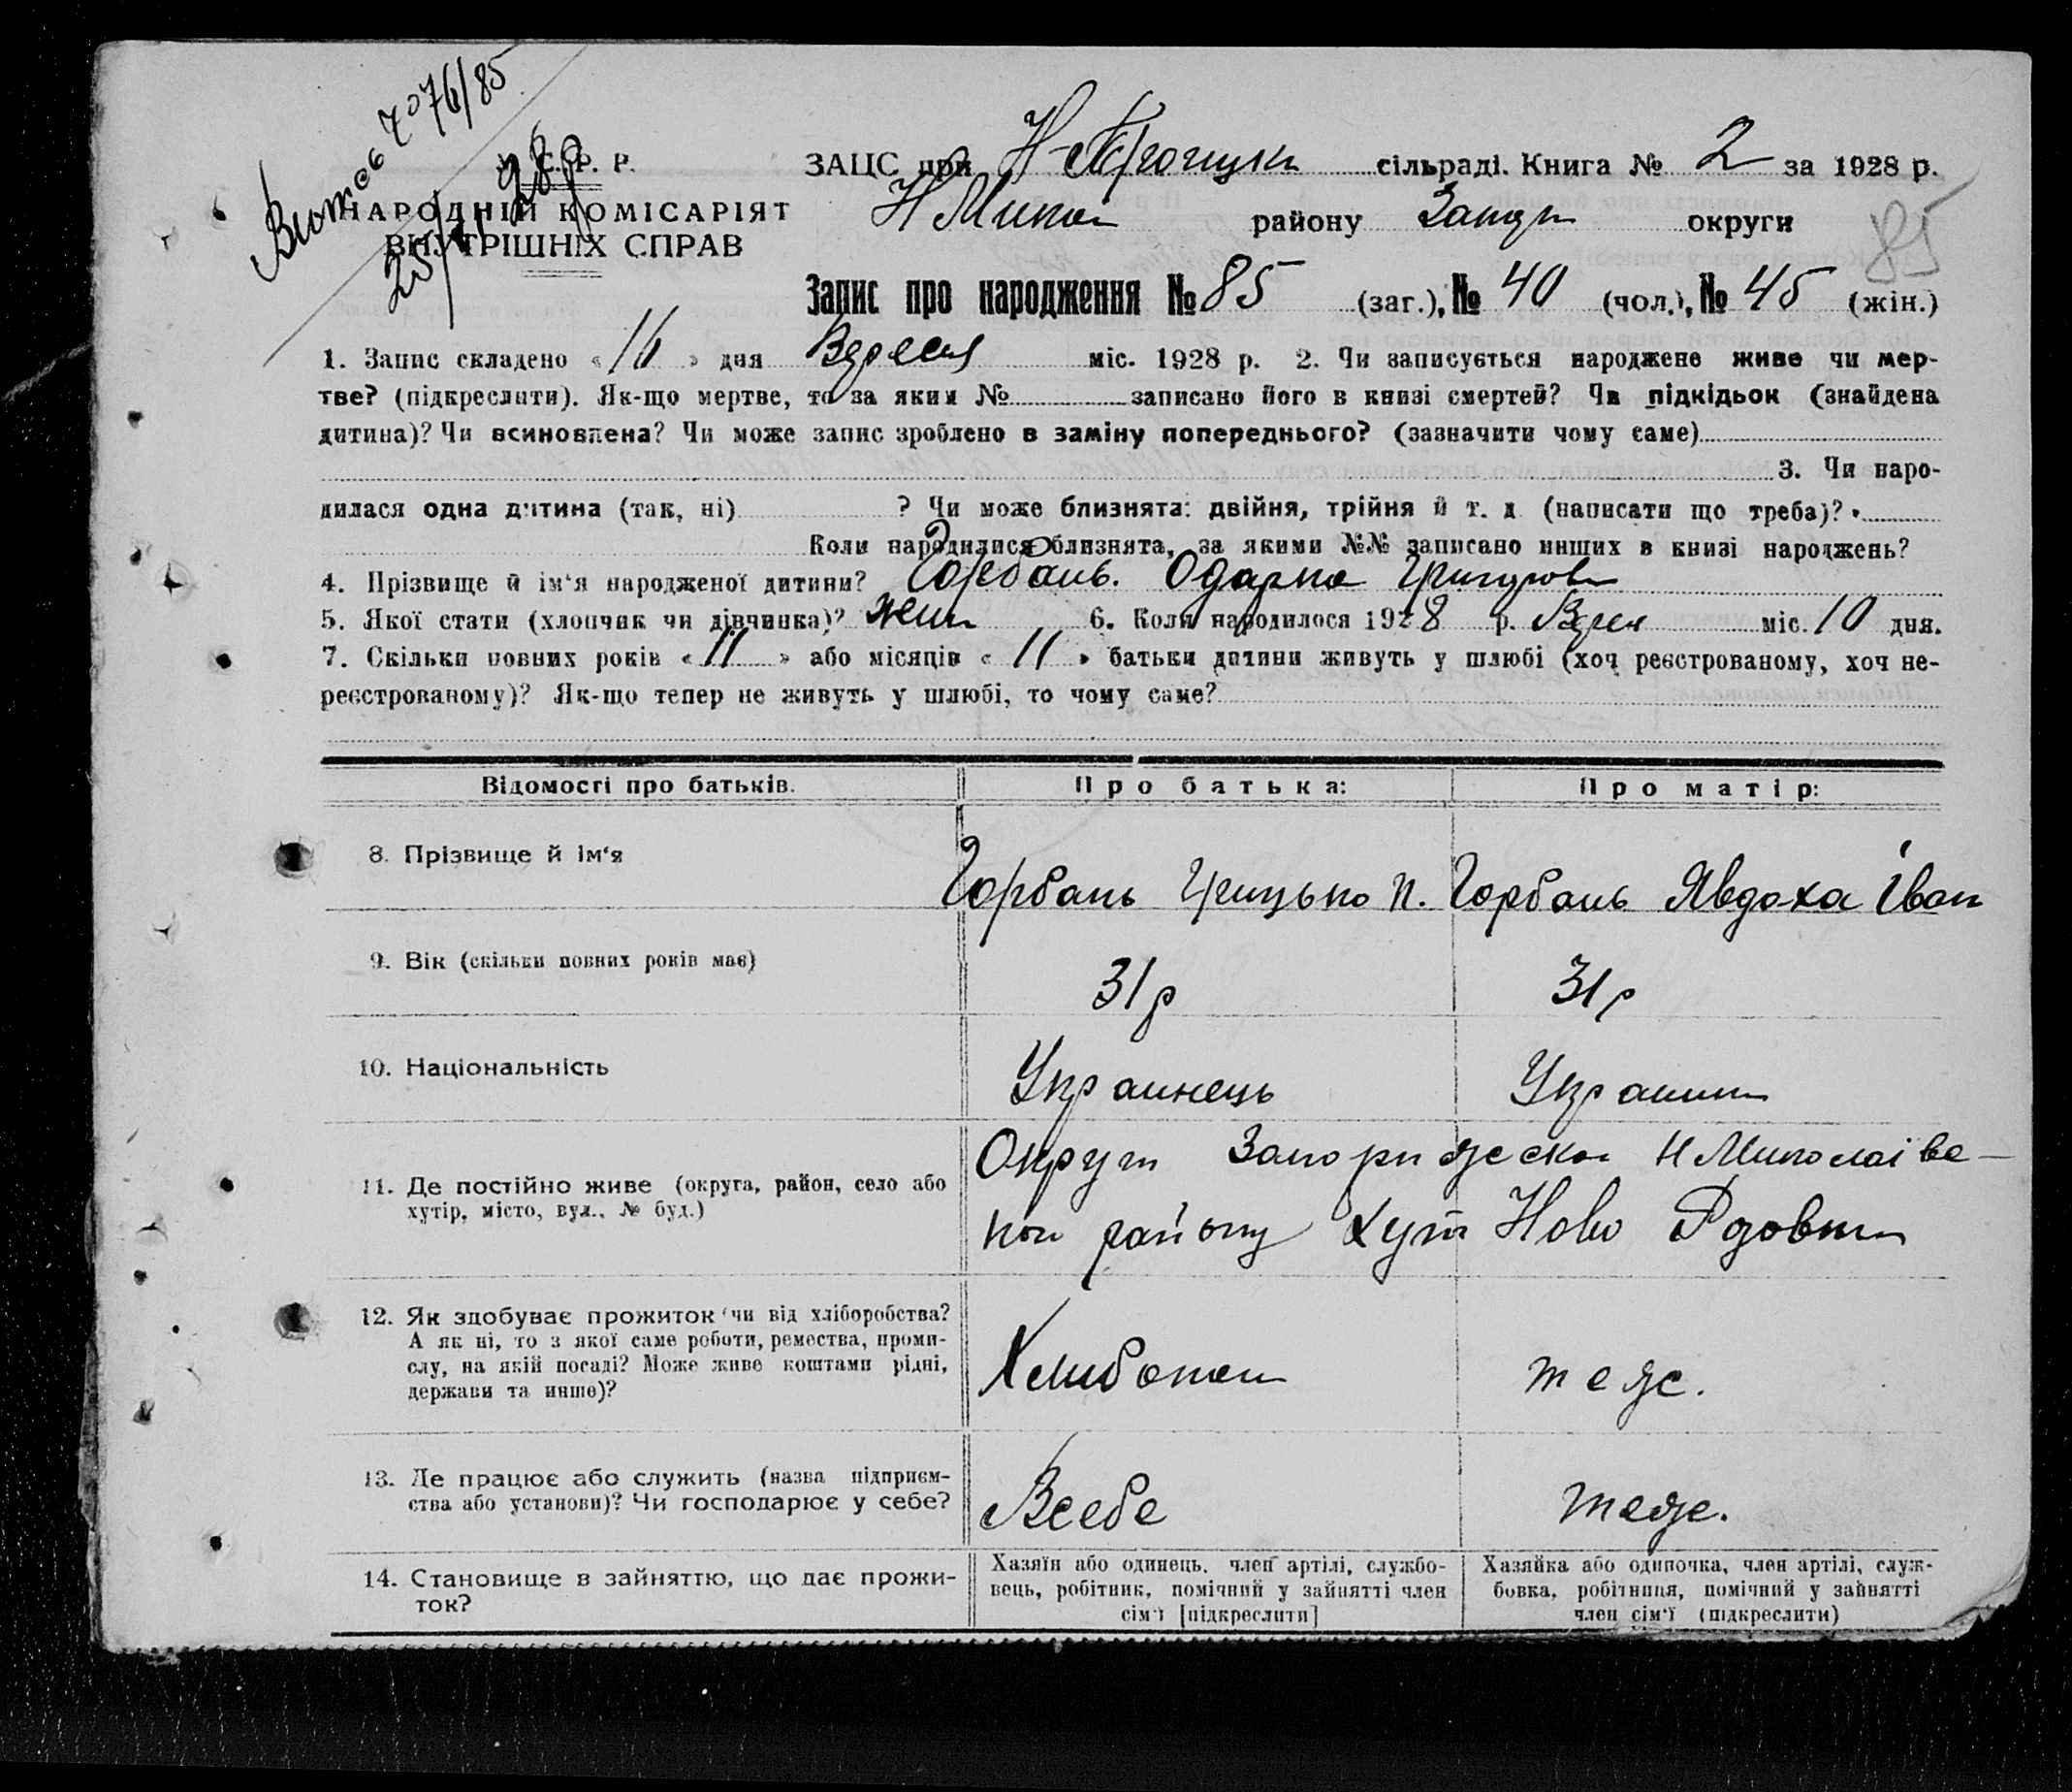 Витяг 7076/85
У. С. Р. Р.
НАРОДНІЙ КОМІСАРІЯТ
ВНУТРІШНІХ СПРАВ
28р
25/
ЗАЦС при Н-Троицки сільраді. Книга № 2 за 1928 р.
Н Микол району Запор округи
85
Запис про народження № 85 (заг.), № 40 (чол.), № 45 (жін.)
1. Запис складено « 16 » дня Вересня міс. 1928 р. 2. Чи записується народжене живе чи мер-
тве? (підкреслити). Як-що мертве, то за яким № записано його в книзі смертей? Чи підкідьок (знайдена
дитина)? Чи всиновлена? Чи може запис зроблено в заміну попереднього? (зазначити чому саме)
3. Чи наро-
дилася одна дитина (так, ні) ? Чи може близнята: двійня, трійня й т. д. (написати що треба)?
Коли народилися близнята, за якими №№ записано инших в книзі народжень?
4. Прізвище й ім'я народженої дитини? Горбань. Одарка Григоров
5. Якої стати (хлопчик чи дівчинка)? жин 6. Коли народилося 1928 р. Верес міс. 10 дня.
7. Скільки повних років « 11 » або місяців « 11 » батьки дитини живуть у шлюбі (хоч реєстрованому, хоч не-
реєстрованому)? Як-що тепер не живуть у шлюбі, то чому саме?
Відомості про батьків. Про батька: Про матір:
8. Прізвище й ім'я Горбань Грицько П. Горбань Явдоха Іван
9. Вік (скільки повних років має) 31р 31р
10. Національність Украинець Украинк
11. Де постійно живе (округа, район, село або
хутір, місто, вул., № буд.)
Округи Запорижеско Н Миколаівс-
кои району Хут Ново
12. Як здобуває прожиток чи від хліборобства?
А як ні, то з якої саме роботи, ремества, проми-
слу, на якій посаді? Може живе коштами рідні,
держави та инше)?
Хлибопаш теж.
13. Де працює або служить (назва підприєм-
ства або установи)? Чи господарює у себе?
Всебе теж.
14. Становище в зайняттю, що дає прожи-
ток?
Хазяїн або одинець, член артілі, службо-
вець, робітник, помічний у зайнятті член
сім'ї [підкреслити]
Хазяйка або одиночка, член артілі, служ-
бовка, робітниця, помічний у зайнятті
член сім'ї (підкреслити)